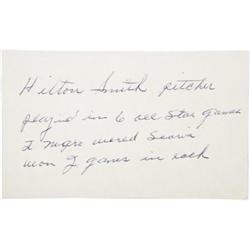 Hilton Smith pitcher
played in 6 all Star games
2 negro wored Searis
won 2 games in each